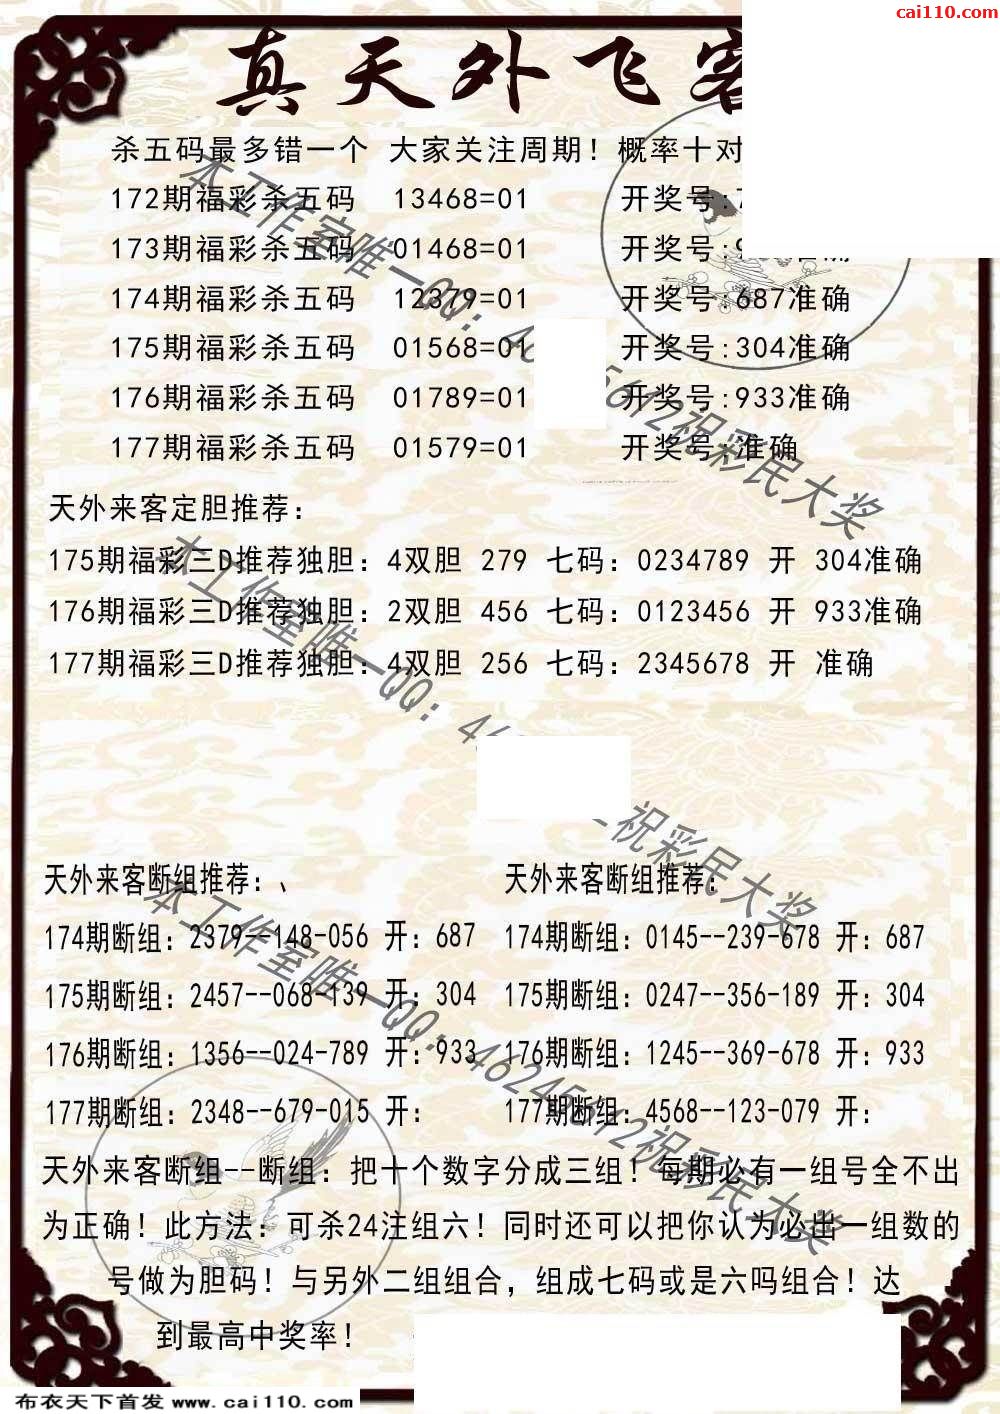 cai110.com
真天外飞客
杀五码最多错一个 大家关注周期！概率十对
172期福彩杀五码 13468=01 开奖号:7
173期福彩杀五码 01468=01 开奖号:9 准确
174期福彩杀五码 12379=01 开奖号:687准确
175期福彩杀五码 01568=01 开奖号:304准确
176期福彩杀五码 01789=01 开奖号:933准确
177期福彩杀五码 01579=01 开奖号:准确
本工作室唯一QQ：46 5612祝彩民大奖
天外来客定胆推荐：
175期福彩三D推荐独胆：4双胆 279 七码：0234789 开 304准确
176期福彩三D推荐独胆：2双胆 456 七码：0123456 开 933准确
177期福彩三D推荐独胆：4双胆 256 七码：2345678 开 准确
本工作室唯一QQ：46 祝彩民大奖
天外来客断组推荐：、
174期断组：2379--148-056 开：687
175期断组：2457--068-139 开：304
176期断组：1356--024-789 开：933
177期断组：2348--679-015 开：
天外来客断组推荐：
174期断组：0145--239-678 开：687
175期断组：0247--356-189 开：304
176期断组：1245--369-678 开：933
177期断组：4568--123-079 开：
本工作室唯一QQ：46245612祝彩民大奖
天外来客断组--断组：把十个数字分成三组！每期必有一组号全不出
为正确！此方法：可杀24注组六！同时还可以把你认为必出一组数的
号做为胆码！与另外二组组合，组成七码或是六吗组合！达
到最高中奖率！
布衣天下首发 www.cai110.com